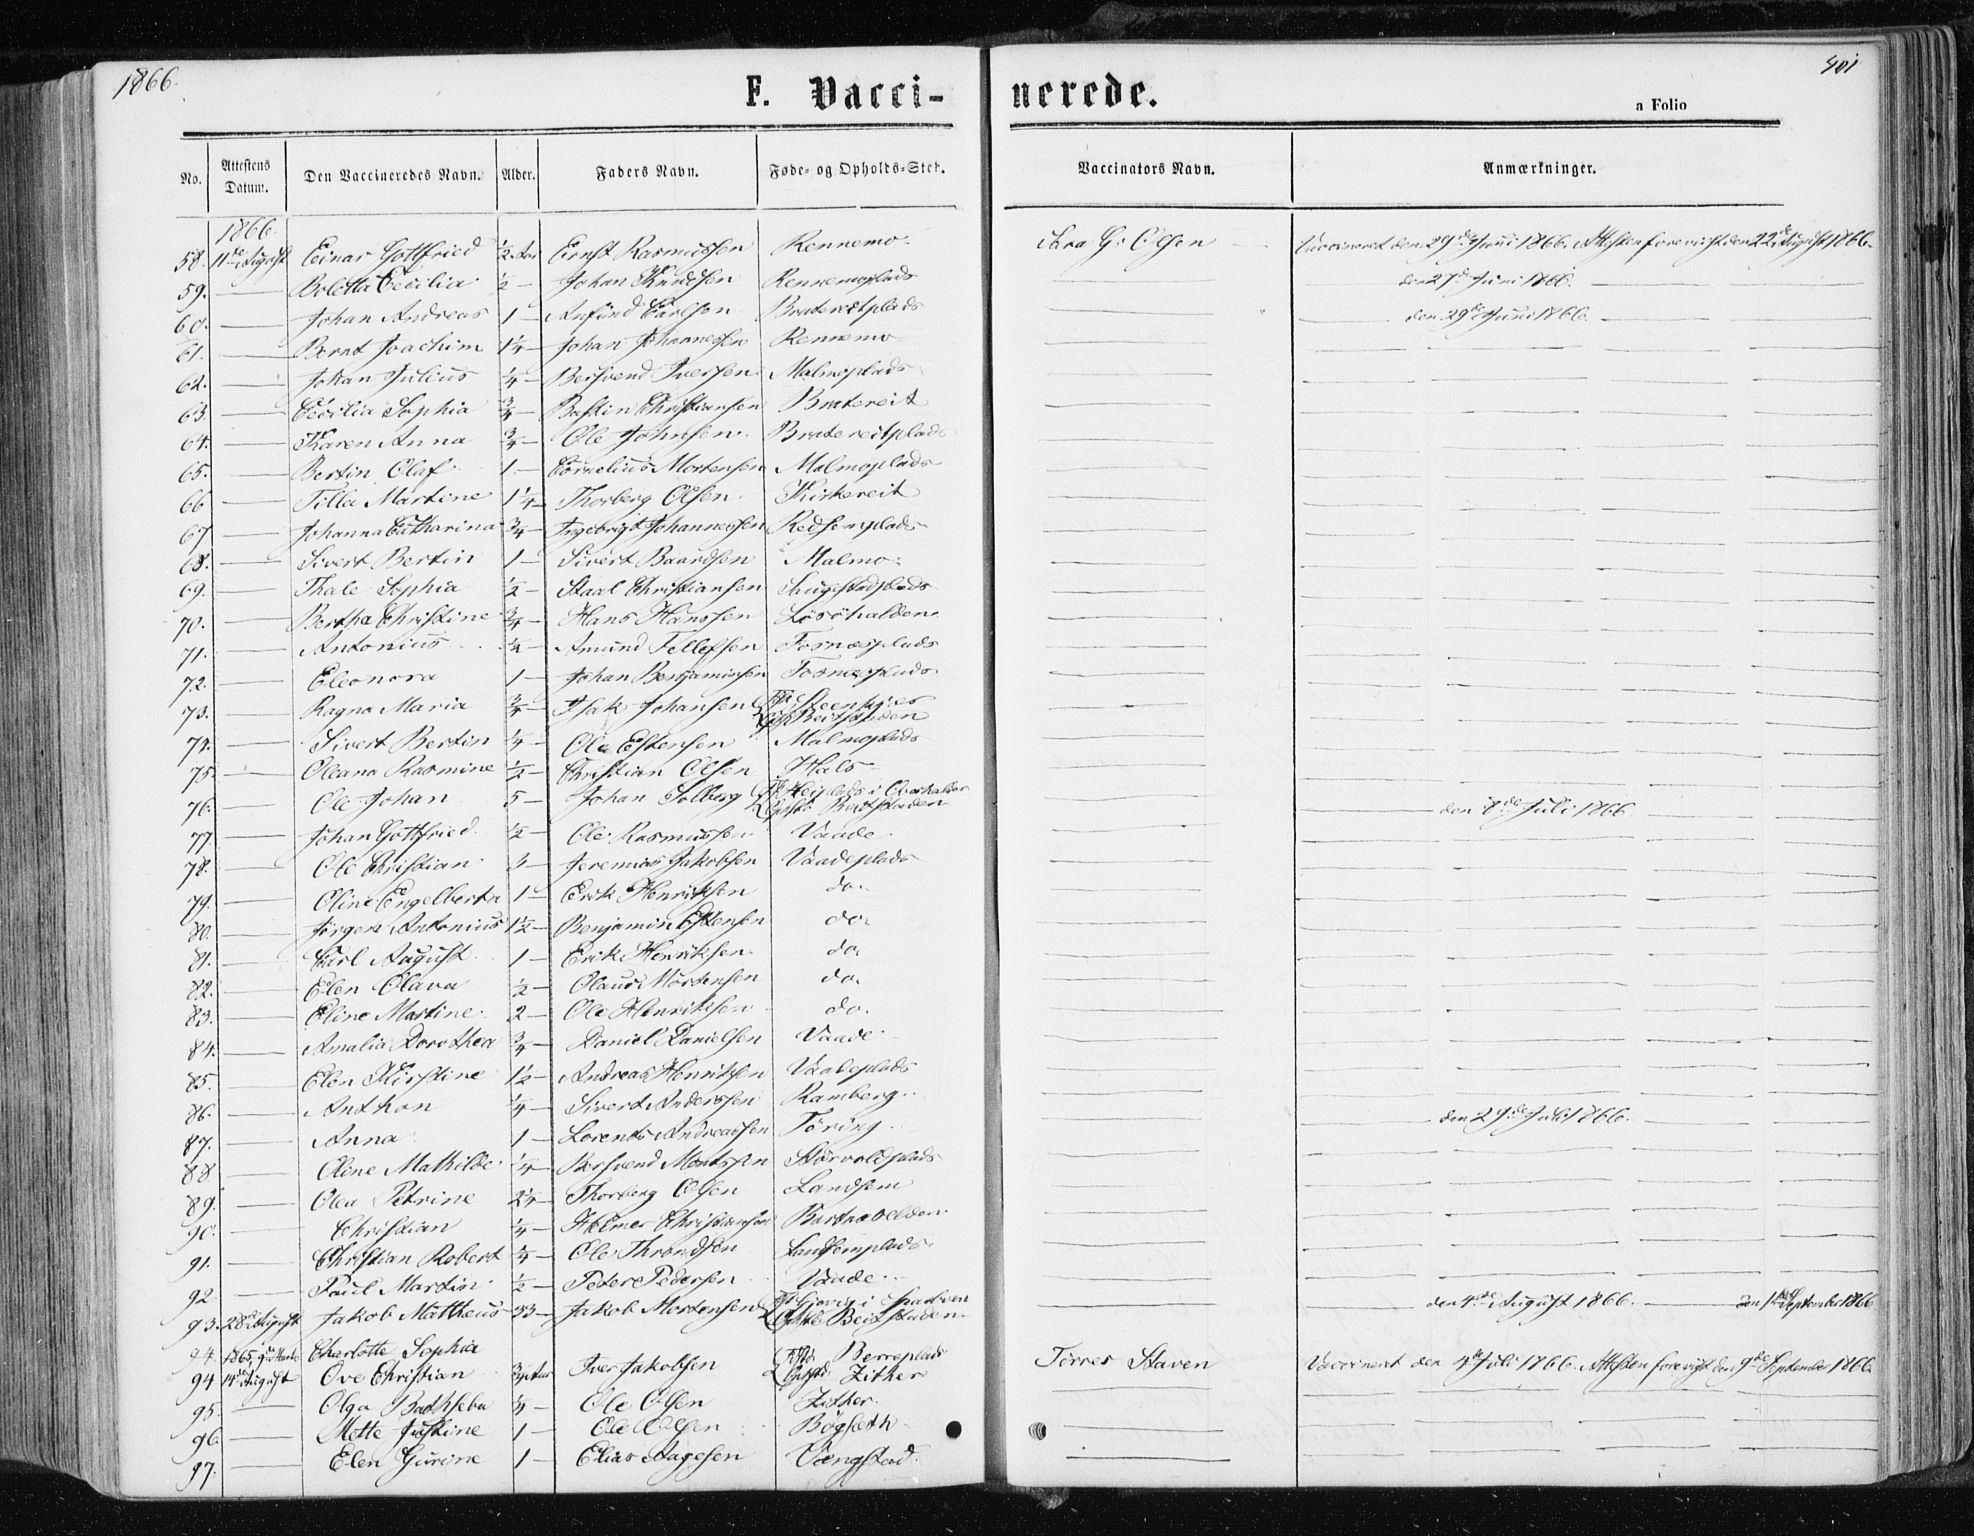 1866.
F. Vacci-
nerede.
401
a Folio
No. Attestens Datum. Den Vaccineredes Navn. Alder. Faders Navn. Føde- og Opholds-Sted. Vaccinators Navn. Anmærkninger.
1866.
58. 11te August Einar Gottfried ½ Aar Ernst Rasmussen Rennemo. G. Olsen Vaccineret den 29de Juni 1866. Attesten forevist den 22de August 1866.
59. — Boletta Cecilia ½ — Johan Knudsen Rennemoplads — den 27de Juni 1866. —
60. — Johan Andreas 1 — Anfind Carlsen Bratereitplads — den 29de Juni 1866. —
61. — Bernt Joachim 1¼ — Johan Johannessen Rennemo —
62. — Johan Julius ¼ — Bersvend Iversen Malmoplads —
63. — Cecilia Sophia ¾ — Bastin Christiansen Bratereit —
64. — Karen Anna ¾ — Ole Johnsen Bratereitplads —
65. — Bertin Olaf 1 — Cornelius Mortensen Malmoplads —
66. — Tilla Martine 1¼ — Thorberg Olsen Kirkereit —
67. — Johanna Catharina ¾ — Ingebrigt Johannessen Redsemplads —
68. — Sivert Bertin 1 — Sivert Baardsen Malmo —
69. — Thale Sophia ½ — Staal Christiansen —
70. — Bertha Christine ¾ — Hans Hanssen —
71. — Antonius ¼ — Amund Tellefsen Fornæsplads —
72. — Eleonora 1 — Johan Benjaminsen Fornæsplads —
73. — Ragna Maria ¾ — Isak Johansen Steenkjer Beitstaden —
74. — Sivert Bertin ¼ — Ole Estensen Malmoplads —
75. — Oleana Rasmine ½ — Christian Olsen Hals —
76. — Ole Johan 5 — Johan Solberg i Overhalden Beitstaden — den 8de Juli 1866. —
77. — Johan Gottfried ½ — Ole Rasmussen Vaade —
78. — Ole Christian 3 — Jeremias Jakobsen Vaadeplads —
79. — Oline Engelberta 1 — Erik Henriksen do. —
80. — Jørgen Antonius 1½ — Benjamin Estensen do. —
81. — Carl August 1 — Erik Henriksen do. —
82. — Elen Olava ½ — Olaus Mortensen do. —
83. — Eline Martine 2 — Ole Henriksen do. —
84. — Amalia Dorothea ¾ — Daniel Danielsen Vaade —
85. — Elen Kirstine 1½ — Andreas Henriksen Vaadeplads —
86. — Anthon ¼ — Sivert Anderssen Ramberg —
87. — Anna 1 — Lorents Andreassen Tøring — den 29de Juli 1866. —
88. — Oline Mathilde ¼ — Bersvend Størvoldplads —
89. — Olea Petrine 2¼ — Thorberg Olsen Landsem —
90. — Christian ¼ — Helmer Christiansen —
91. — Christian Robert ¼ — Ole Throndsen Landsemplads —
92. — Paul Martin ½ — Peter Pedersen Vaade —
93. 28de August Jakob Mattheus 33 — Jakob Mortensen i Sparbuen Beitstaden — den 4de August 1866. — den 1ste September 1866
94. 1865, Charlotte Sophia
94 14de August Ove Christian ¾ Aar Iver Jakobsen Berreplads Zither Tørres Staven Vaccineret den 4de Juli 1866. Attesten forevist den 9de September 1866
95. — Olga Bathseba ¼ — Ole Olsen Zither —
96. — Mette Justine 1 — Ole Olsen Bøgseth —
97. — Elen Gurine 1 — Elias Aagesen Vengstad —